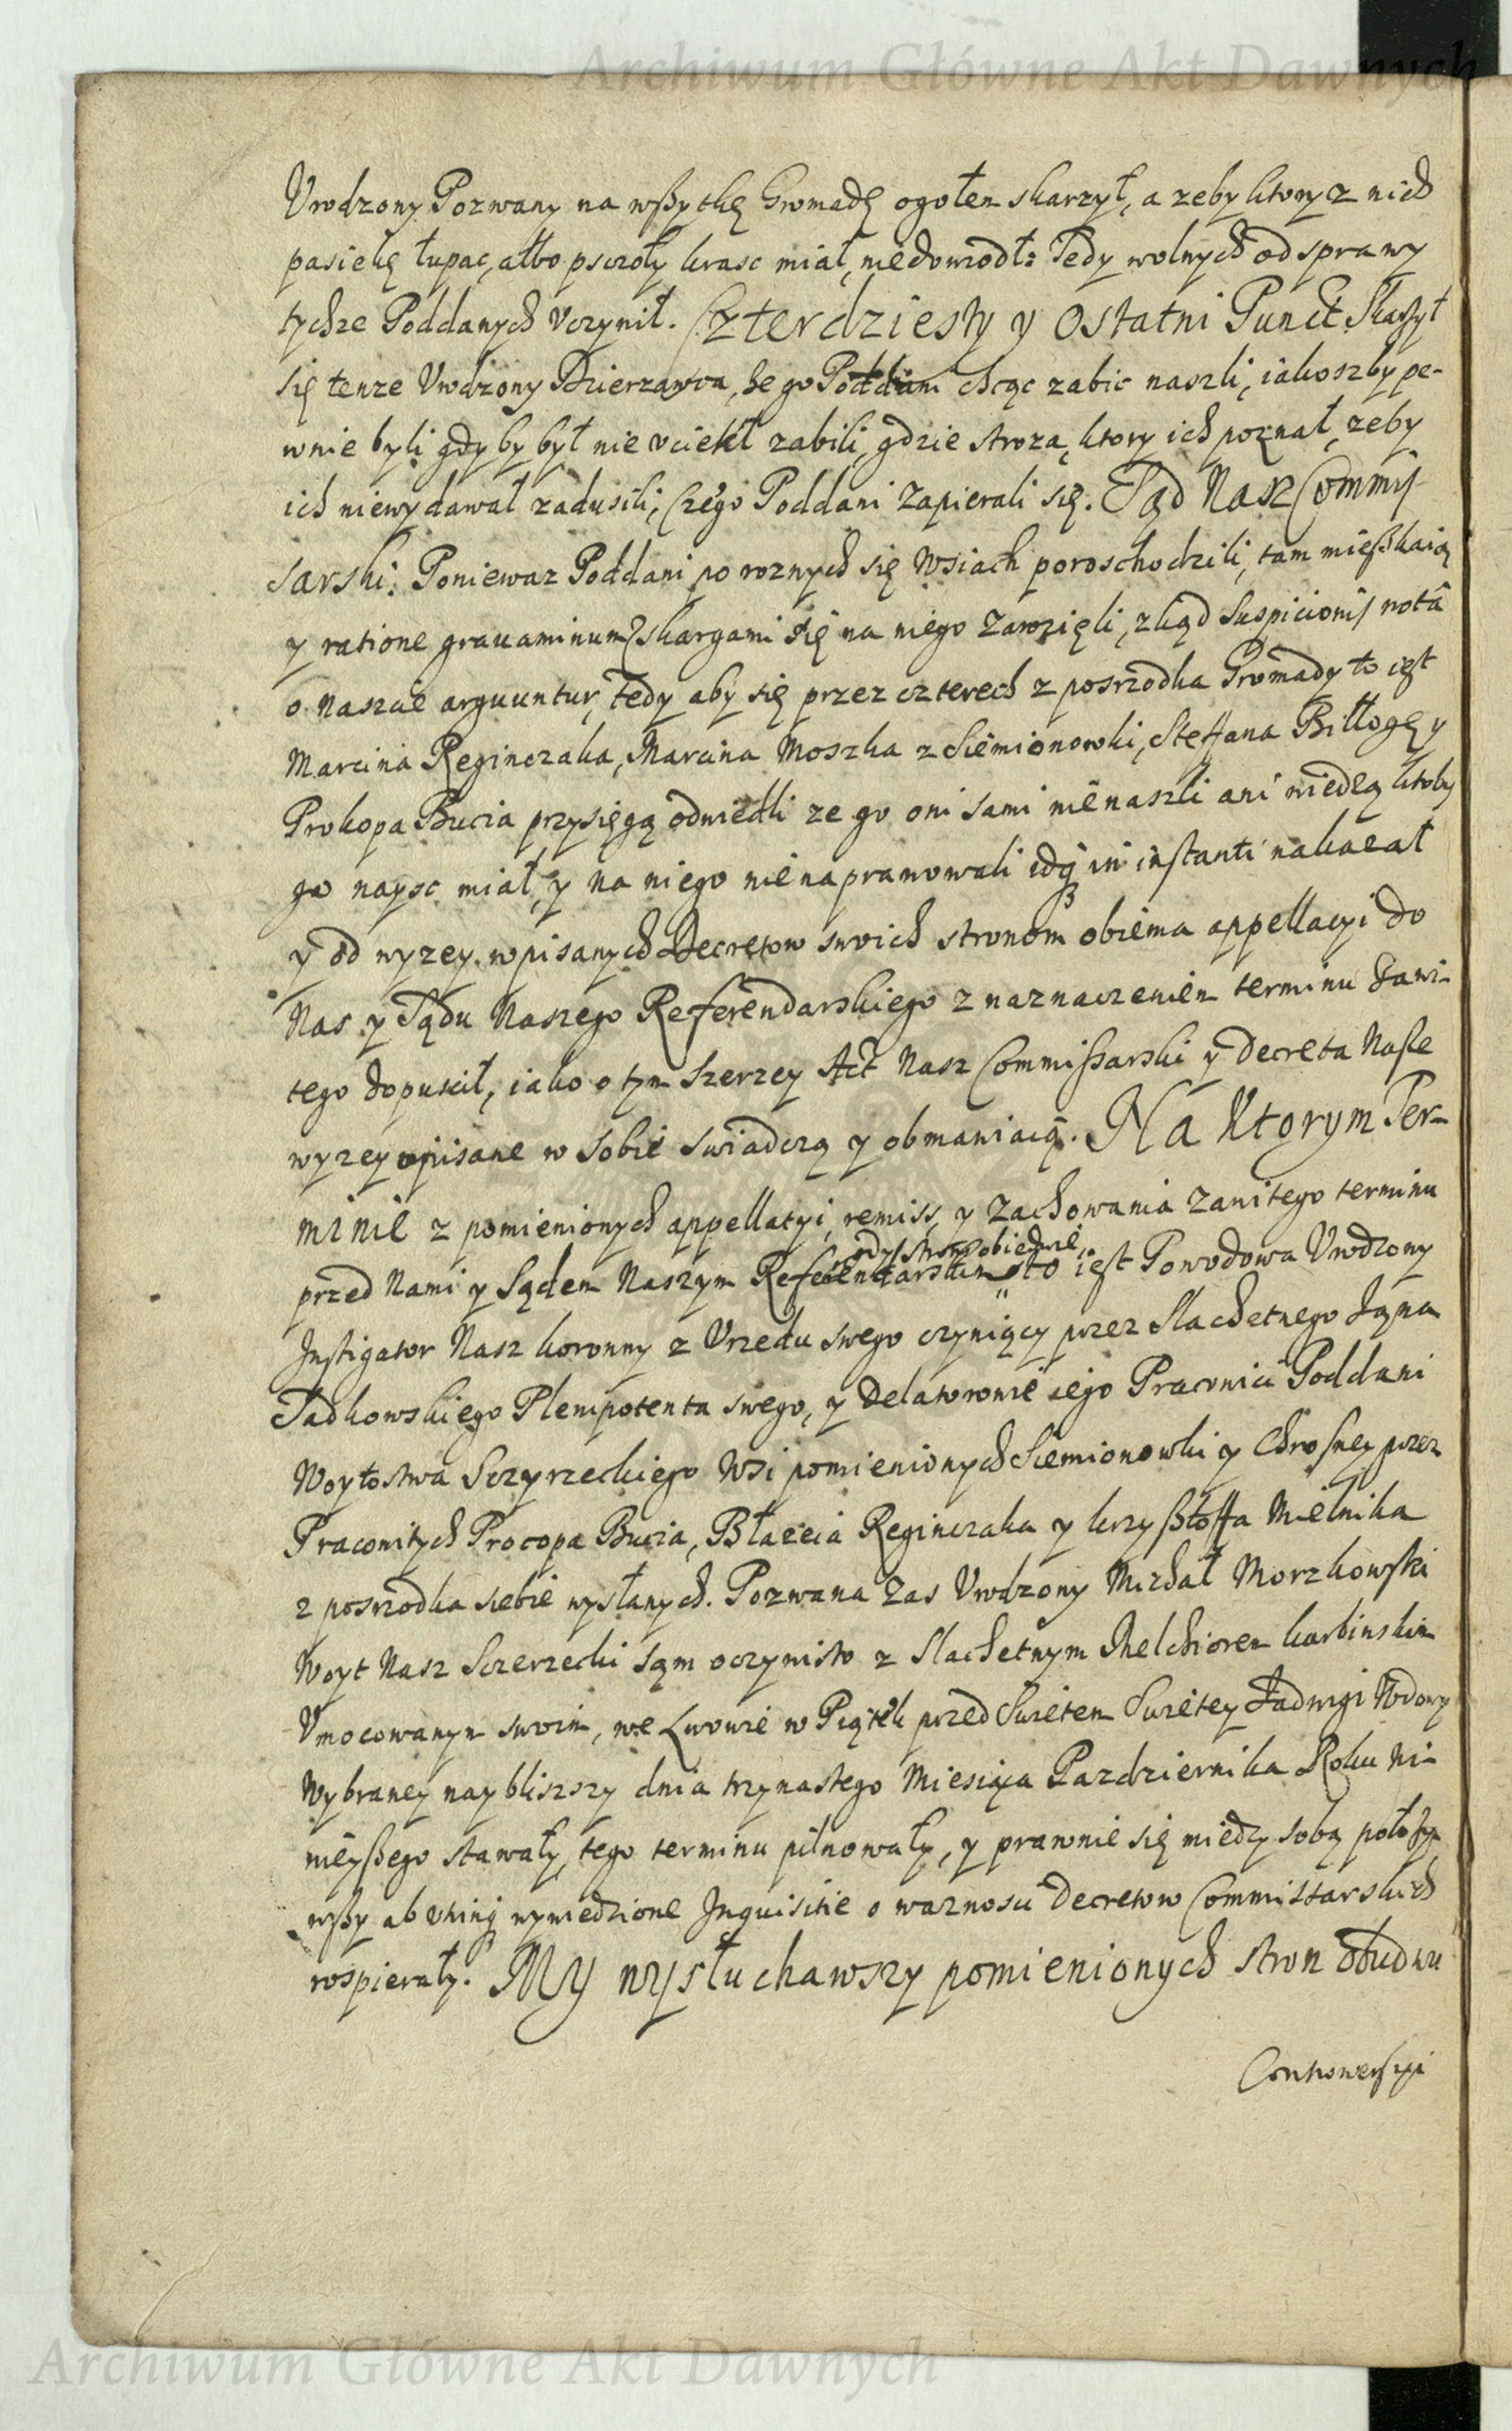 Archiwum Główne Akt Dawnych
Vrodzony Pozwany na wszytkę Gromadę ogołem skarzył, a zeby ktory z nich
pasiekę łupac, albo pszczoły krasc miał, niedowiodł: Tedy wolnych od sprawy
tychze Poddanych vczynił. Czterdziesty y ostatni Punct Skarzył
się tenze Vrodzony Dzierzawca, ze go Poddani chcąc zabic naszli, iakoszby pe-
wnie byli gdy by był nie vciekł zabili, gdzie stroza, ktory ich poznał, zeby
ich niewydawał zadusili, czego Poddani zapierali się. Sąd Nasz Commis
sarski: Poniewaz Poddani po roznych się wsiach poroschodzili, tam mieszkaią
y ratione grauaminum skargami się na niego zawzięli, zkąd suspicionis notâ
o naszcie arguuntur, tedy aby się przez czterech z posrzodka Gromady to iest
Marcina Reginczaka, Marcina Moszka z Siemionowki, Steffana Biłłogę y
Prokopa Bucia przysięgą odwiedli ze go oni sami nie naszli ani wiedzą ktoby
go naysc miał, y na niego nie naprawowali idq3 in instanti nakazał
y od wyzey wpisanych Decretow swoich stronom obiema appellacyi do
Nas y Sądu Naszego Referendarskiego z naznaczeniem terminu zawi-
tego dopuscił, iako o tym szerzey Act Nasz Commissarski y Decreta Nasze
wyzey wpisane w sobie swiadczą y obmawiaią. Na Ktorym Ter-
minie z pomienionych appellatyi, remiss, y zachowania zawitego terminu
gdy strony obiedwie
przed Nami y Sądem Naszym Referendarskim to iest Powodowa Vrodzony
Instigator Nasz koronny z Vrzedu swego czyniący przez Slachetnego Jana
Sadkowskiego Plenipotenta swego, y Delatorowie iego Pracowici Poddani
Woytostwa Sczyrzeckiego wsi pomienionych Siemionowki y Chrosney przez
Pracowitych Procopa Bucia, Błazeia Reginczaka y krzysztoffa Mielnika
z posrzodka siebie wysłanych. Pozwana zas Vrodzony Michał Morzkowski
Woyt Nasz Sczerzecki sąm oczywisto z Slachetnym Melchiorem karbinskim
Vmocowanym swoim, we Lwowie w Piątek przed Swiętem Swiętey Jadwigi Wdowy
Wybraney naybliszszy dnia trzynastego Miesiąca Pazdziernika Roku Ni-
nieyszego stawały, tego terminu pilnowały, y prawnie się miedzy sobą położy-
wszy ab vtrinq3 wywiedzione Inquisitie o waznosci Decretow Commissarskich
rospierały. My wysłuchawszy pomienionych stron obudwu
Controwersyi
Archiwum Główne Akt Dawnych